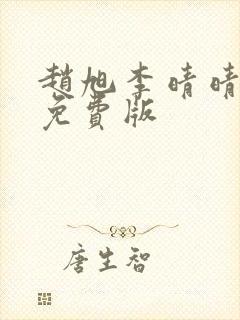 趙旭李晴晴
免費版
唐生智